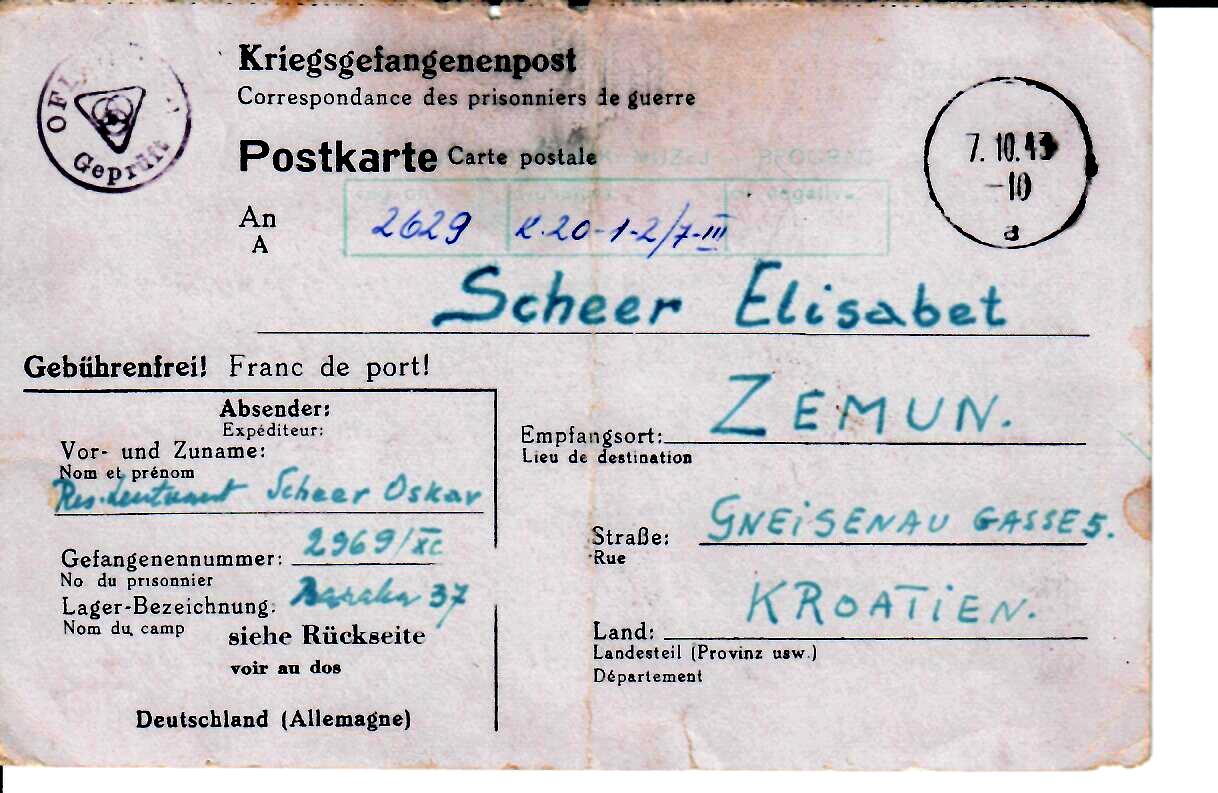 Kriegsgefangenenpost
Correspondance des prisonniers de guerre
Geprüft
Postkarte Carte postale
7. 10. 43
-10
a
An
A
2629 K. 20-1-2/7-III
Scheer Elisabet
Gebührenfrei! Franc de port!
Absender:
Expéditeur:
Vor- und Zuname:
Nom et prénom
Res. Leutnant Scheer Oskar
Gefangenennummer: 2969/XC
No du prisonnier
Lager-Bezeichnung: 37
Nom du camp
siehe Rückseite
voir au dos
Deutschland (Allemagne)
Empfangsort: ZEMUN.
Lieu de destination
Straße: GNEISENAU GASSE 5.
Rue
Land: KROATIEN.
Landesteil (Provinz usw.)
Département